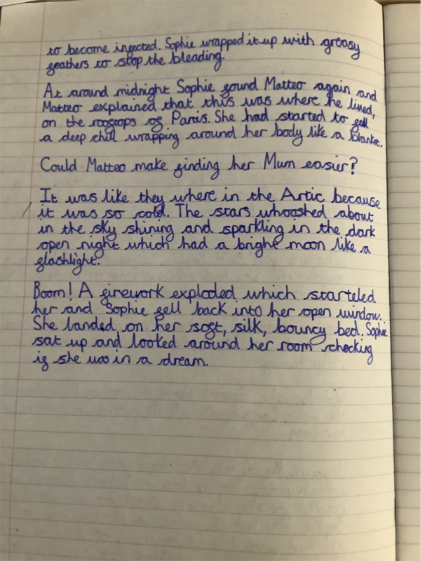 to become infected. Sophie wrapped it up with greasy
feathers to stop the bleading.
At around midnight Sophie found Matteo again and
Matteo explained that this was where he lived,
on the rooftops of Paris. She had started to fell
a deep chill wrapping around her body like a blanket.
Could Matteo make finding her Mum easier?
It was like they where in the Artic because
it was so cold. The stars whooshed about
in the sky shining and sparkling in the dark
open night which had a bright moon like a
flashlight.
Boom! A firework exploded which starteled
her and Sophie fell back into her open window.
She landed on her soft, silk, bouncy bed. Sophie
sat up and looked around her room checking
if she was in a dream.